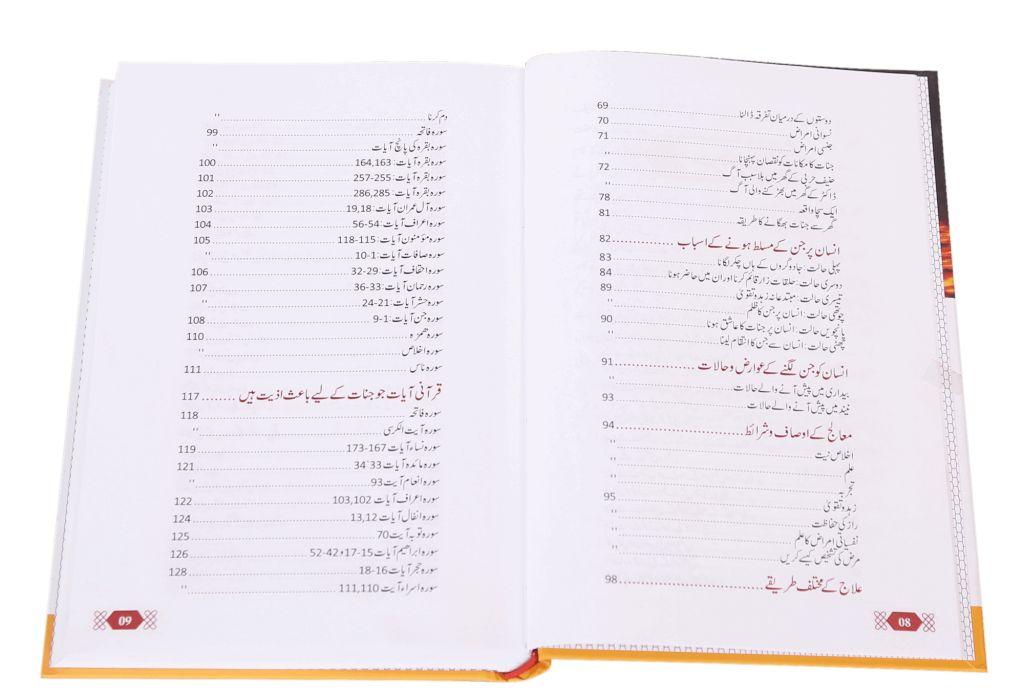 دوستوں کے درمیان تفرقہ ڈالنا 69
نسوانی امراض 70
جنسی امراض 71
جنات کا مکانات کو نقصان پہنچانا "
حنیف حربی کے گھر میں بلا سبب آگ 72
ڈاکٹر کے گھر میں بھڑکنے والی آگ "
ایک سچا واقعہ 78
گھر سے جنات بھگانے کا طریقہ 81
انسان پر جن کے مسلط ہونے کے اسباب 82
پہلی حالت: جادوگروں کے ہاں چکر لگانا 83
دوسری حالت: حلقات زار قائم کرنا اور ان میں حاضر ہونا 84
تیسری حالت: مبتدعانہ زہد و تقویٰ 89
چوتھی حالت: انسان پر جن کا ظلم "
پانچویں حالت: انسان پر جنات کا عاشق ہونا 90
چھٹی حالت: انسان سے جن کا انتقام لینا "
انسان کو جن لگنے کے عوارض و حالات 91
بیداری میں پیش آنے والے حالات "
نیند میں پیش آنے والے حالات 93
معالج کے اوصاف و شرائط 94
اخلاص نیت "
علم "
تجربہ "
زہد و تقویٰ 95
راز کی حفاظت "
نفسیاتی امراض کا علم "
مرض کی تشخیص کیسے کریں "
علاج کے مختلف طریقے 98
08
دم کرنا "
سورہ فاتحہ 99
سورہ بقرہ کی پانچ آیات "
سورہ بقرہ آیات: 164,163 100
سورہ بقرہ آیات: 255-257 101
سورہ بقرہ آیات: 286,285 102
سورہ آل عمران آیات: 19,18 103
سورہ اعراف آیات: 54-56 104
سورہ مؤمنون آیات: 115-118 105
سورہ صافات آیات: 1-10 "
سورہ احقاف آیات: 29-32 106
سورہ رحمان آیات: 33-36 107
سورہ حشر آیات: 21-24 "
سورہ جن آیات: 1-9 108
سورہ ھمزہ 110
سورہ اخلاص "
سورہ ناس 111
قرآنی آیات جو جنات کے لیے باعث اذیت ہیں 117
سورہ فاتحہ 118
سورہ آیت الکرسی "
سورہ نساء آیات 167-173 119
سورہ مائدہ آیات 33٬34 121
سورہ انعام آیت 93 "
سورہ اعراف آیات 103,102 122
سورہ انفال آیات 13,12 124
سورہ توبہ آیت 70 125
سورہ ابراھیم آیات 15-17، 42-52 126
سورہ حجر آیات 16-18 128
سورہ اسراء آیت 111,110 "
09